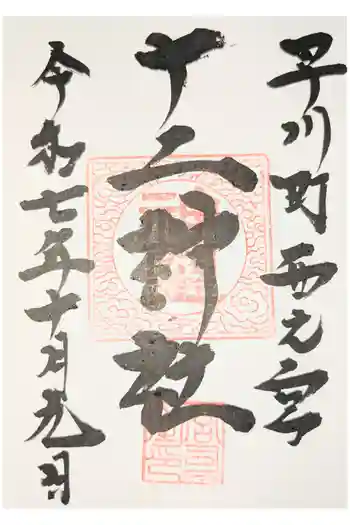 早川町西之宮
十二神社
令和七年十月九日